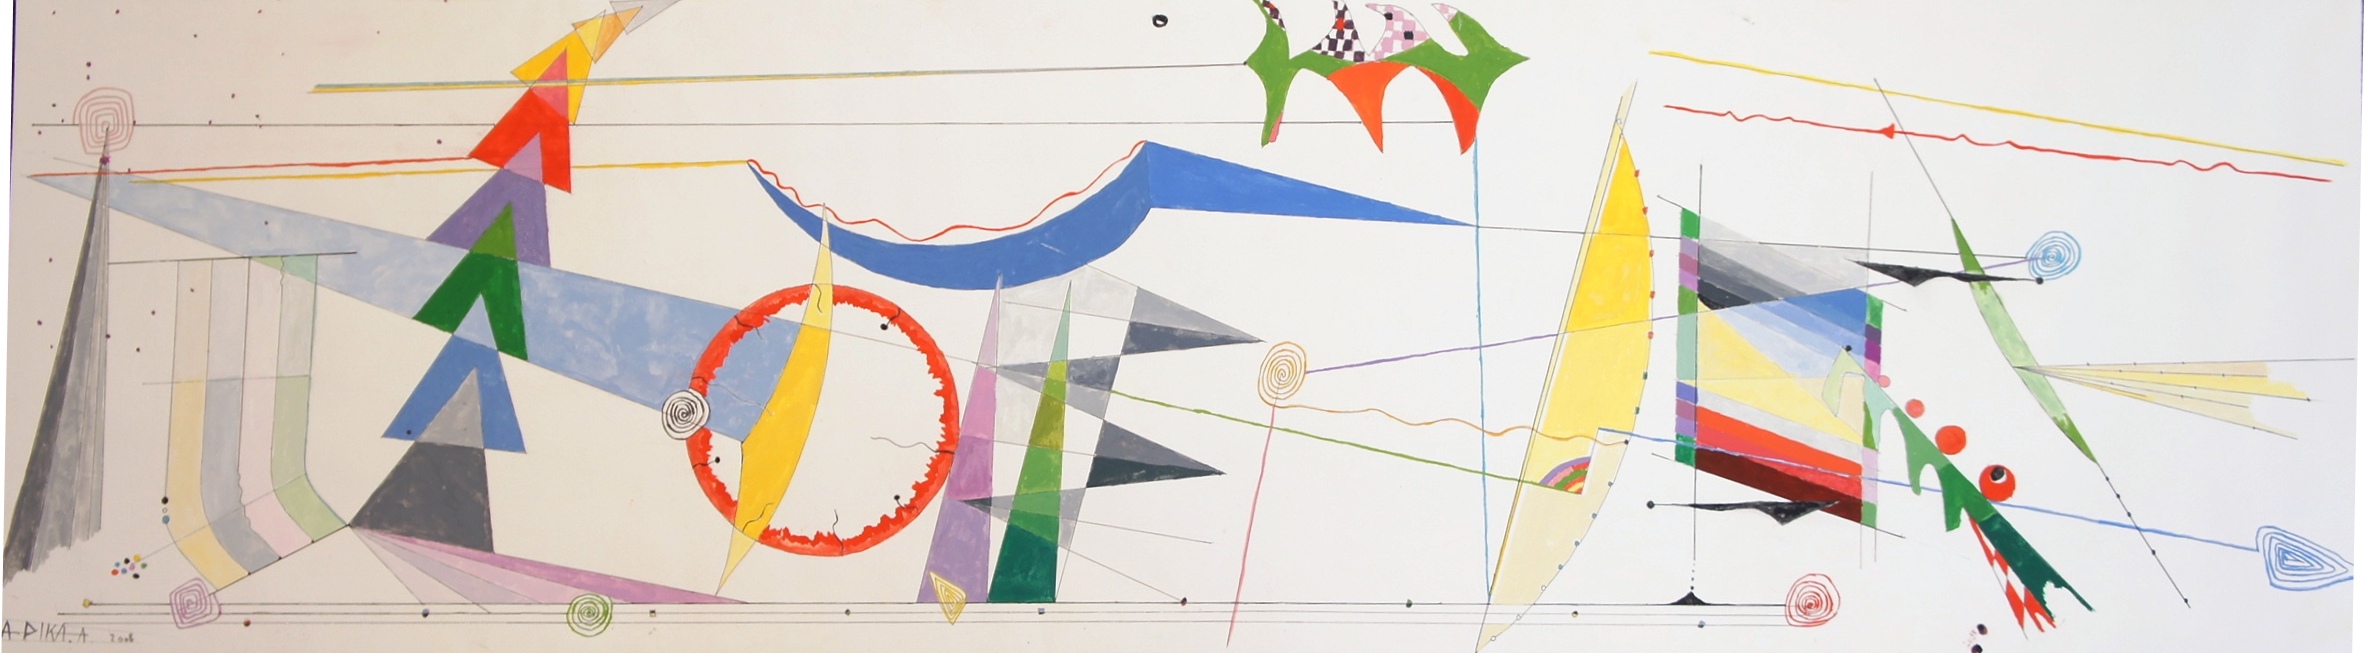 A DIKA. A. 2006